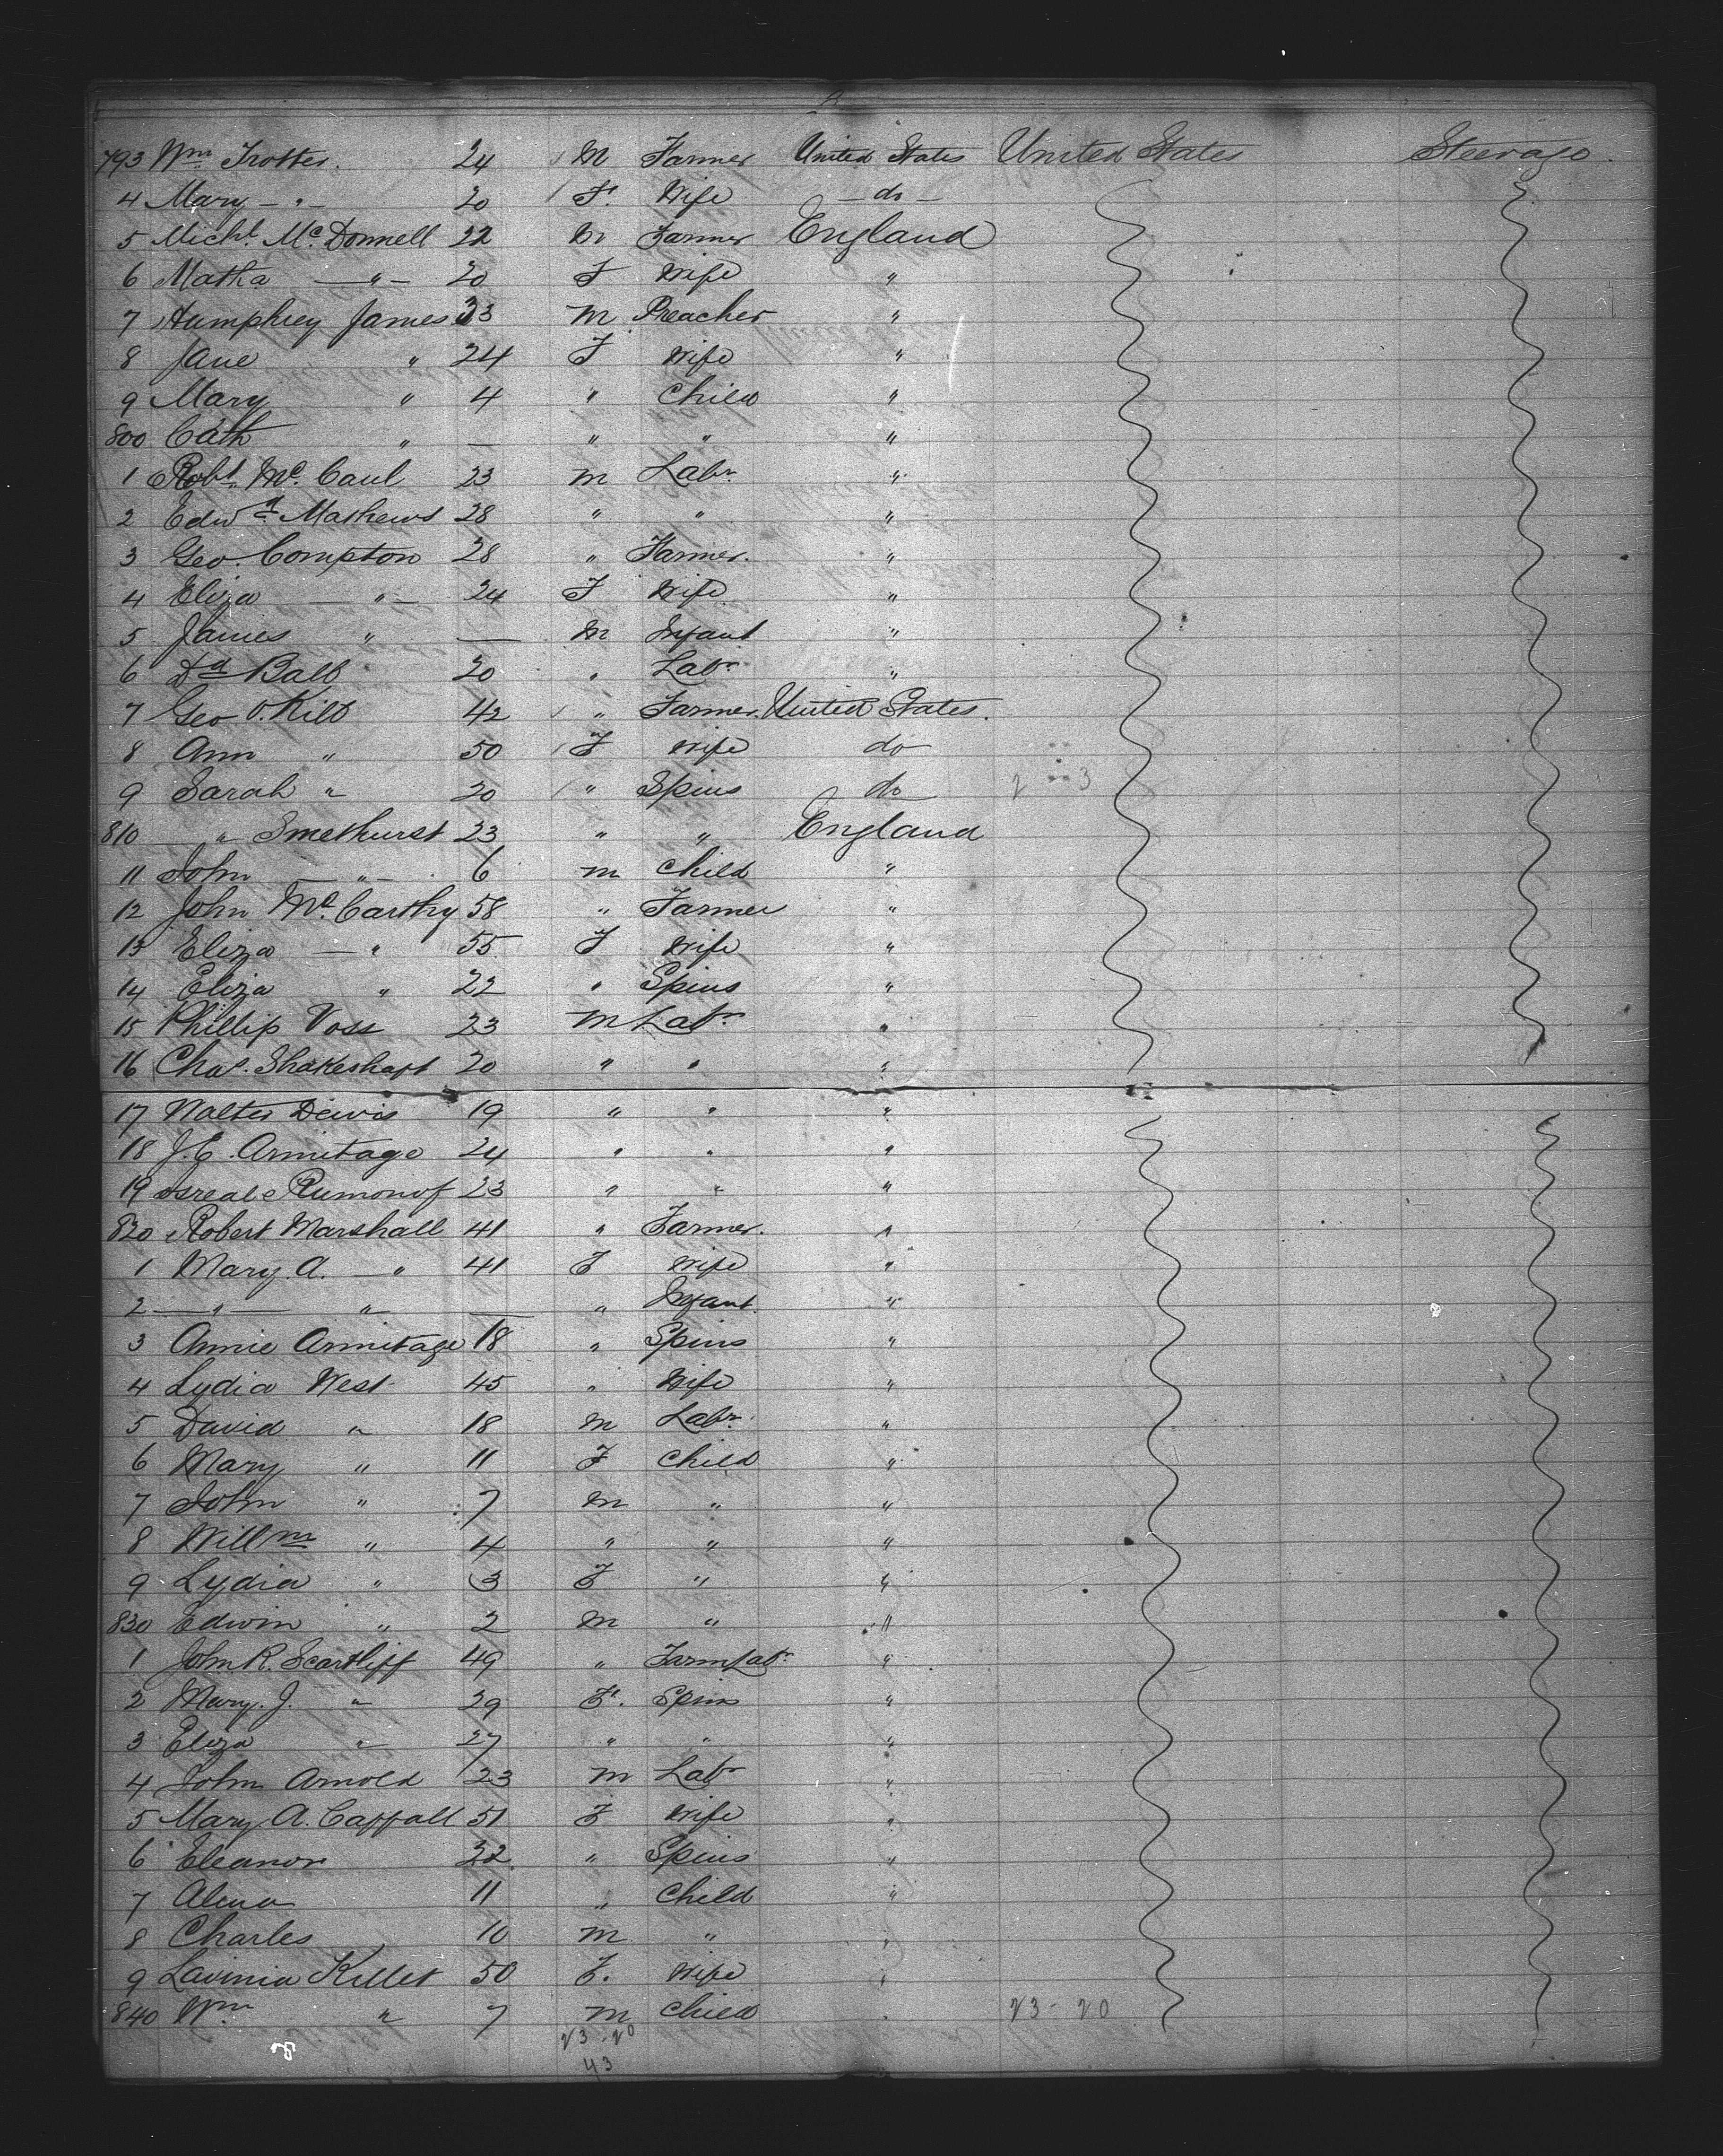 793 Wm Trotter. 24 M Farmer United States United States Steerage.
4 Mary — " — 20 F. Wife — do —
5 Michl. Mc. Donnell 22 M Farmer England
6 Matha — " — 20 F Wife "
7 Humphrey James 33 M Preacher "
8 Jane " 24 F Wife "
9 Mary " 4 " Child "
800 Cath " — " " "
1 Robt. Mc. Caul 23 M Labr. "
2 Edwd Mathews 28 " " "
3 Geo. Compton 28 " Farmer. "
4 Eliza — " — 24 F Wife "
5 James " — M Infant "
6 Dd Ball 20 " Labr "
7 Geo O. Kilt 42 " Farmer. United States.
8 Ann " 50 F Wife do
9 Sarah " 20 " Spins do
810 " Smethurst 23 " " England
11 John — " — 6 M Child "
12 John Mc. Carthy 58 " Farmer "
13 Eliza — " 55 F Wife "
14 Eliza " 22 " Spins "
15 Phillip Voss 23 M Labr "
16 Chas. Shakeshaft 20 " " "
17 Walter Dewis 19 " " "
18 J. E. Armitage 24 " " "
19 23 " " "
820 Robert Marshall 41 " Farmer. "
1 Mary. A. — " 41 F Wife "
2 — " — " — " Infant. "
3 Annie Armitage 18 " Spins "
4 Lydia West 45 " Wife "
5 David " 18 M Labr. "
6 Mary " 11 F Child "
7 John " 7 M " "
8 Willm " 4 " " "
9 Lydia " 3 F " "
830 Edwin " 2 M " "
1 John R. Scartliff 49 " Farm Labr "
2 Mary. J. " 29 F. Spins "
3 Eliza " 27 " " "
4 John Arnold 23 M Labr "
5 Mary A. Cappall 51 F Wife "
6 Eleanor 22 " Spins "
7 11 " Child "
8 Charles 10 M " "
9 Lavinia Killet 50 F. Wife "
840 Wm " 7 M Child " 23 - 20
23 - 20
43